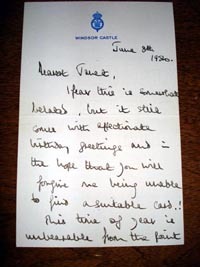 WINDSOR CASTLE
June 8th
1980.
Dearest
I fear this is somewhat
belated, but it still
comes with affectionate
birthday greetings and in
the hope that you will
forgive me being unable
to find a suitable card.!
This time of year is
unbearable from the point